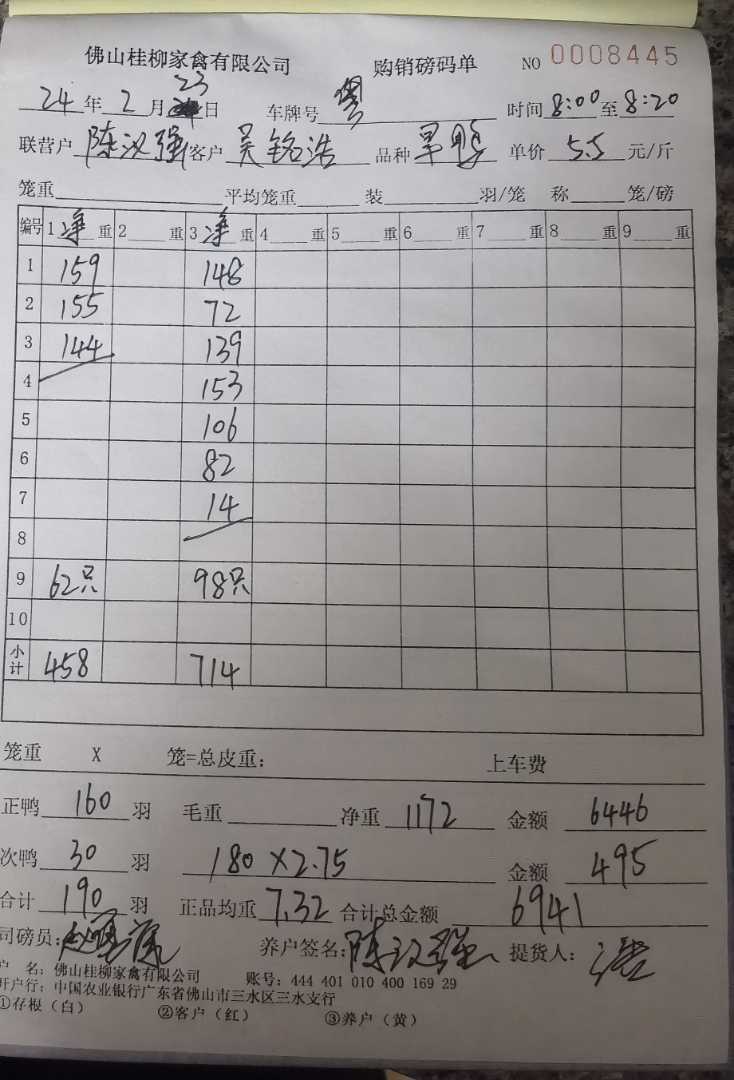 佛山桂柳家禽有限公司 购销磅码单 NO 0008445
24年2月23日 车牌号 粤 时间8:00至8:20
联营户 陈汉强 客户 吴铭浩 品种 旱鸭 单价 5.5 元/斤
笼重 平均笼重 装 羽/笼 称 笼/磅
编号 1净重 2 重 3净重 4 重 5 重 6 重 7 重 8 重 9 重
1 159 148
2 155 72
3 144 139
4 153
5 106
6 82
7 14
8
9 62只 98只
10
小计 458 714
笼重 X 笼=总皮重: 上车费
正鸭 160 羽 毛重 净重 1172 金额 6446
次鸭 30 羽 180×2.75 金额 495
合计 190 羽 正品均重 7.32 合计总金额 6941
司磅员: 养户签名: 陈汉强 提货人: 浩
户 名: 佛山桂柳家禽有限公司 账号: 444 401 010 400 169 29
开户行: 中国农业银行广东省佛山市三水区三水支行
①存根(白) ②客户(红) ③养户(黄)